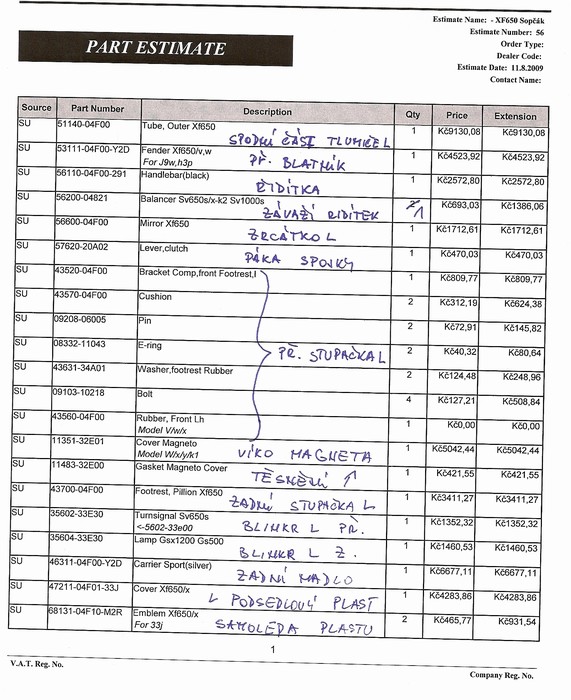 Estimate Name: - XF650 Sopčák
Estimate Number: 56
Order Type:
Dealer Code:
Estimate Date: 11.8.2009
Contact Name:
PART ESTIMATE
Source Part Number Description Qty Price Extension
SU 51140-04F00 Tube, Outer Xf650 1 Kč9130,08 Kč9130,08
SPODNÍ ČÁST TLUMIČE L
SU 53111-04F00-Y2D Fender Xf650/v,w 1 Kč4523,92 Kč4523,92
For J9w,h3p PŘ. BLATNÍK
SU 56110-04F00-291 Handlebar(black) 1 Kč2572,80 Kč2572,80
ŘIDÍTKA
SU 56200-04821 Balancer Sv650s/x-k2 Sv1000s 2 1 Kč693,03 Kč1386,06
ZÁVAŽÍ RIDÍTEK
SU 56600-04F00 Mirror Xf650 1 Kč1712,61 Kč1712,61
ZRCÁTKO L
SU 57620-20A02 Lever,clutch 1 Kč470,03 Kč470,03
PÁKA SPOJKY
SU 43520-04F00 Bracket Comp,front Footrest,l 1 Kč809,77 Kč809,77
SU 43570-04F00 Cushion 2 Kč312,19 Kč624,38
SU 09208-06005 Pin 2 Kč72,91 Kč145,82
SU 08332-11043 E-ring 2 Kč40,32 Kč80,64
PŘ. STUPAČKA L
SU 43631-34A01 Washer,footrest Rubber 2 Kč124,48 Kč248,96
SU 09103-10218 Bolt 4 Kč127,21 Kč508,84
SU 43560-04F00 Rubber, Front Lh 1 Kč0,00 Kč0,00
Model V/w/x
SU 11351-32E01 Cover Magneto 1 Kč5042,44 Kč5042,44
Model W/x/y/k1 VÍKO MAGNETA
SU 11483-32E00 Gasket Magneto Cover 1 Kč421,55 Kč421,55
TĚSNĚNÍ ↑
SU 43700-04F00 Footrest, Pillion Xf650 1 Kč3411,27 Kč3411,27
ZADNÍ STUPAČKA L
SU 35602-33E30 Turnsignal Sv650s 1 Kč1352,32 Kč1352,32
<-5602-33e00 BLINKR L PŘ.
SU 35604-33E30 Lamp Gsx1200 Gs500 1 Kč1460,53 Kč1460,53
BLINKR L Z.
SU 46311-04F00-Y2D Carrier Sport(silver) 1 Kč6677,11 Kč6677,11
ZADNÍ MADLO
SU 47211-04F01-33J Cover Xf650/x 1 Kč4283,86 Kč4283,86
L PODSEDLOVÝ PLAST
SU 68131-04F10-M2R Emblem Xf650/x 2 Kč465,77 Kč931,54
For 33j SAMOLEPA PLASTU
1
V.A.T. Reg. No.
Company Reg. No.